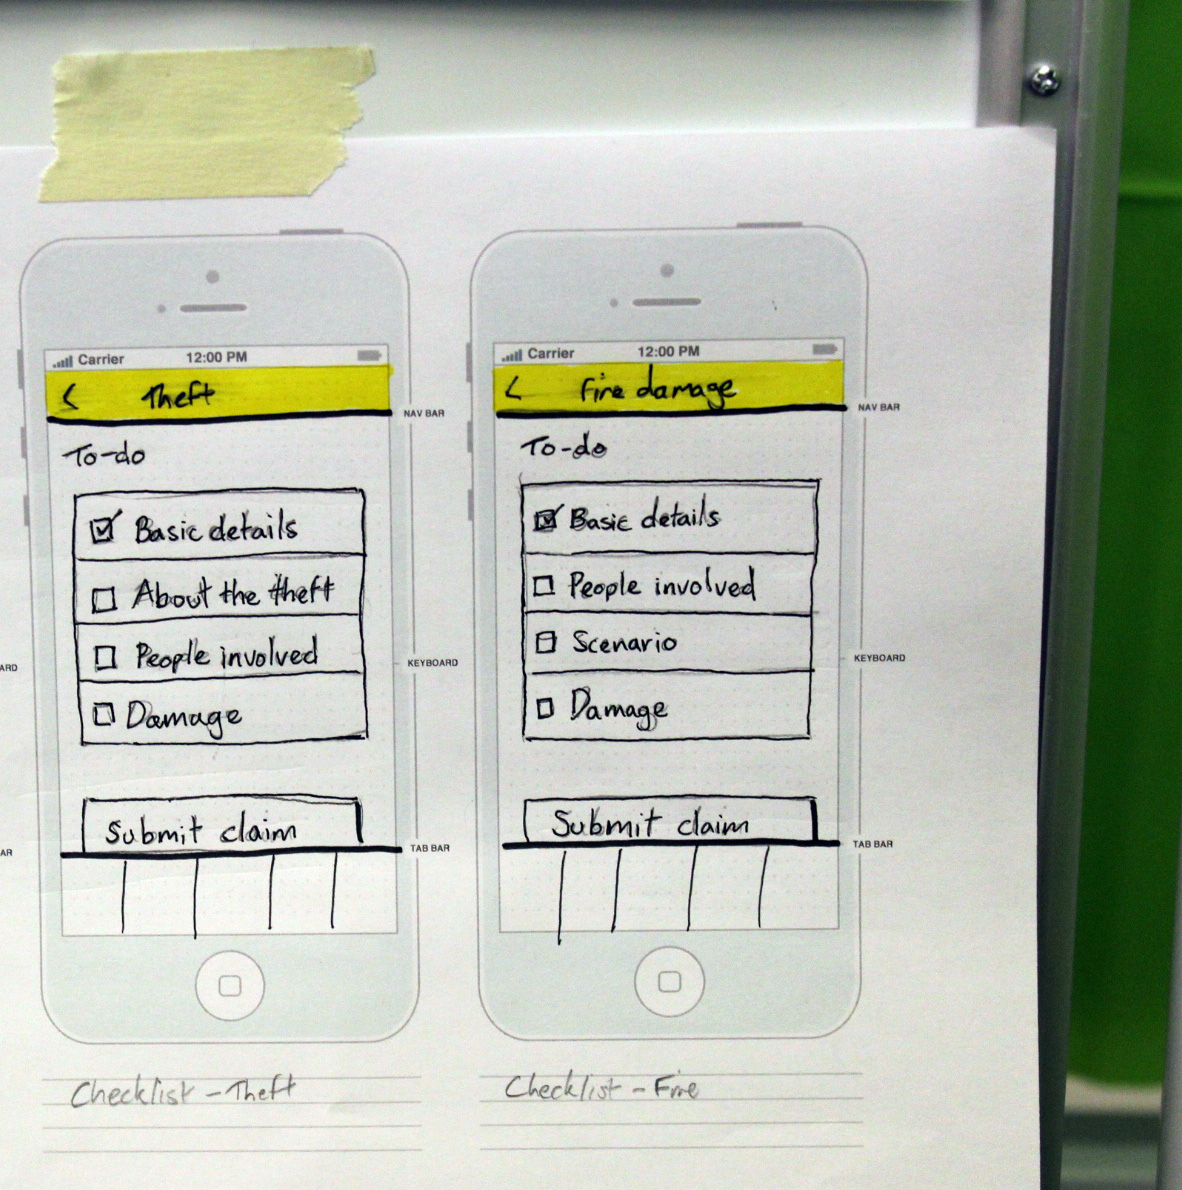 Carrier 12:00 PM
< Theft
NAV BAR
To-do
Basic details
About the theft
People involved
KEYBOARD
Damage
Submit claim
TAB BAR
Checklist - Theft
Carrier 12:00 PM
< Fire damage
NAV BAR
To-do
Basic details
People involved
Scenario
KEYBOARD
Damage
Submit claim
TAB BAR
Checklist - Fire
ARD
AR